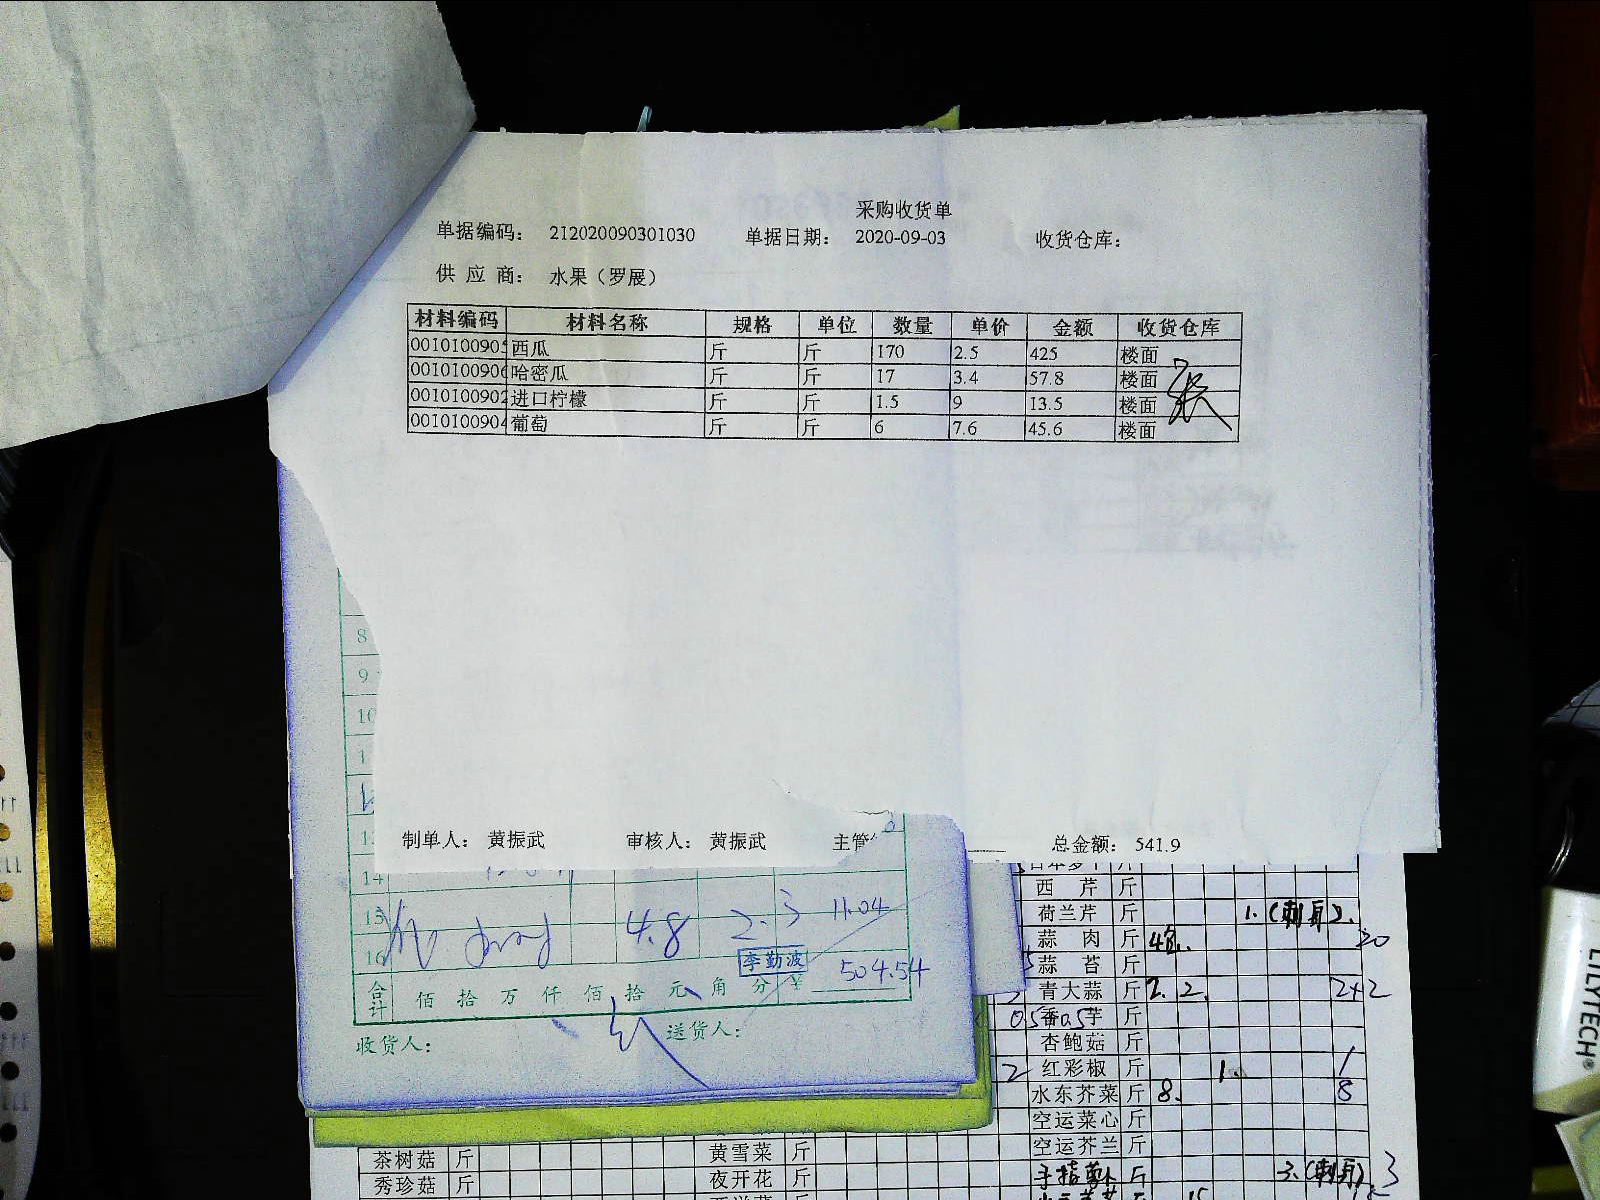 采购收货单
单据编码： 212020090301030 单据日期： 2020-09-03 收货仓库：
供 应 商： 水果（罗展）
材料编码 材料名称 规格 单位 数量 单价 金额 收货仓库
0010100905 西瓜 斤 斤 170 2.5 425 楼面
0010100906 哈密瓜 斤 斤 17 3.4 57.8 楼面
0010100902 进口柠檬 斤 斤 1.5 9 13.5 楼面
0010100904 葡萄 斤 斤 6 7.6 45.6 楼面
制单人： 黄振武 审核人： 黄振武 主管 总金额： 541.9
8
9
10
14
15 4.8 2.3 11.04
16
李勤波
合计 佰 拾 万 仟 佰 拾 元 角 分 ¥ 504.54
收货人： 送货人：
西 芹 斤
荷兰芹 斤 1.(刺身).
蒜 肉 斤 20
蒜 苔 斤
青大蒜 斤 2. 2. 2+2
香 芋 斤
杏鲍菇 斤
2 红彩椒 斤 1. 1
水东芥菜 斤 8. 8
空运菜心 斤
空运芥兰 斤
手指萝卜 斤 3.(刺身) 3
茶树菇 斤 黄雪菜 斤
秀珍菇 斤 夜开花 斤
LILYTECH®